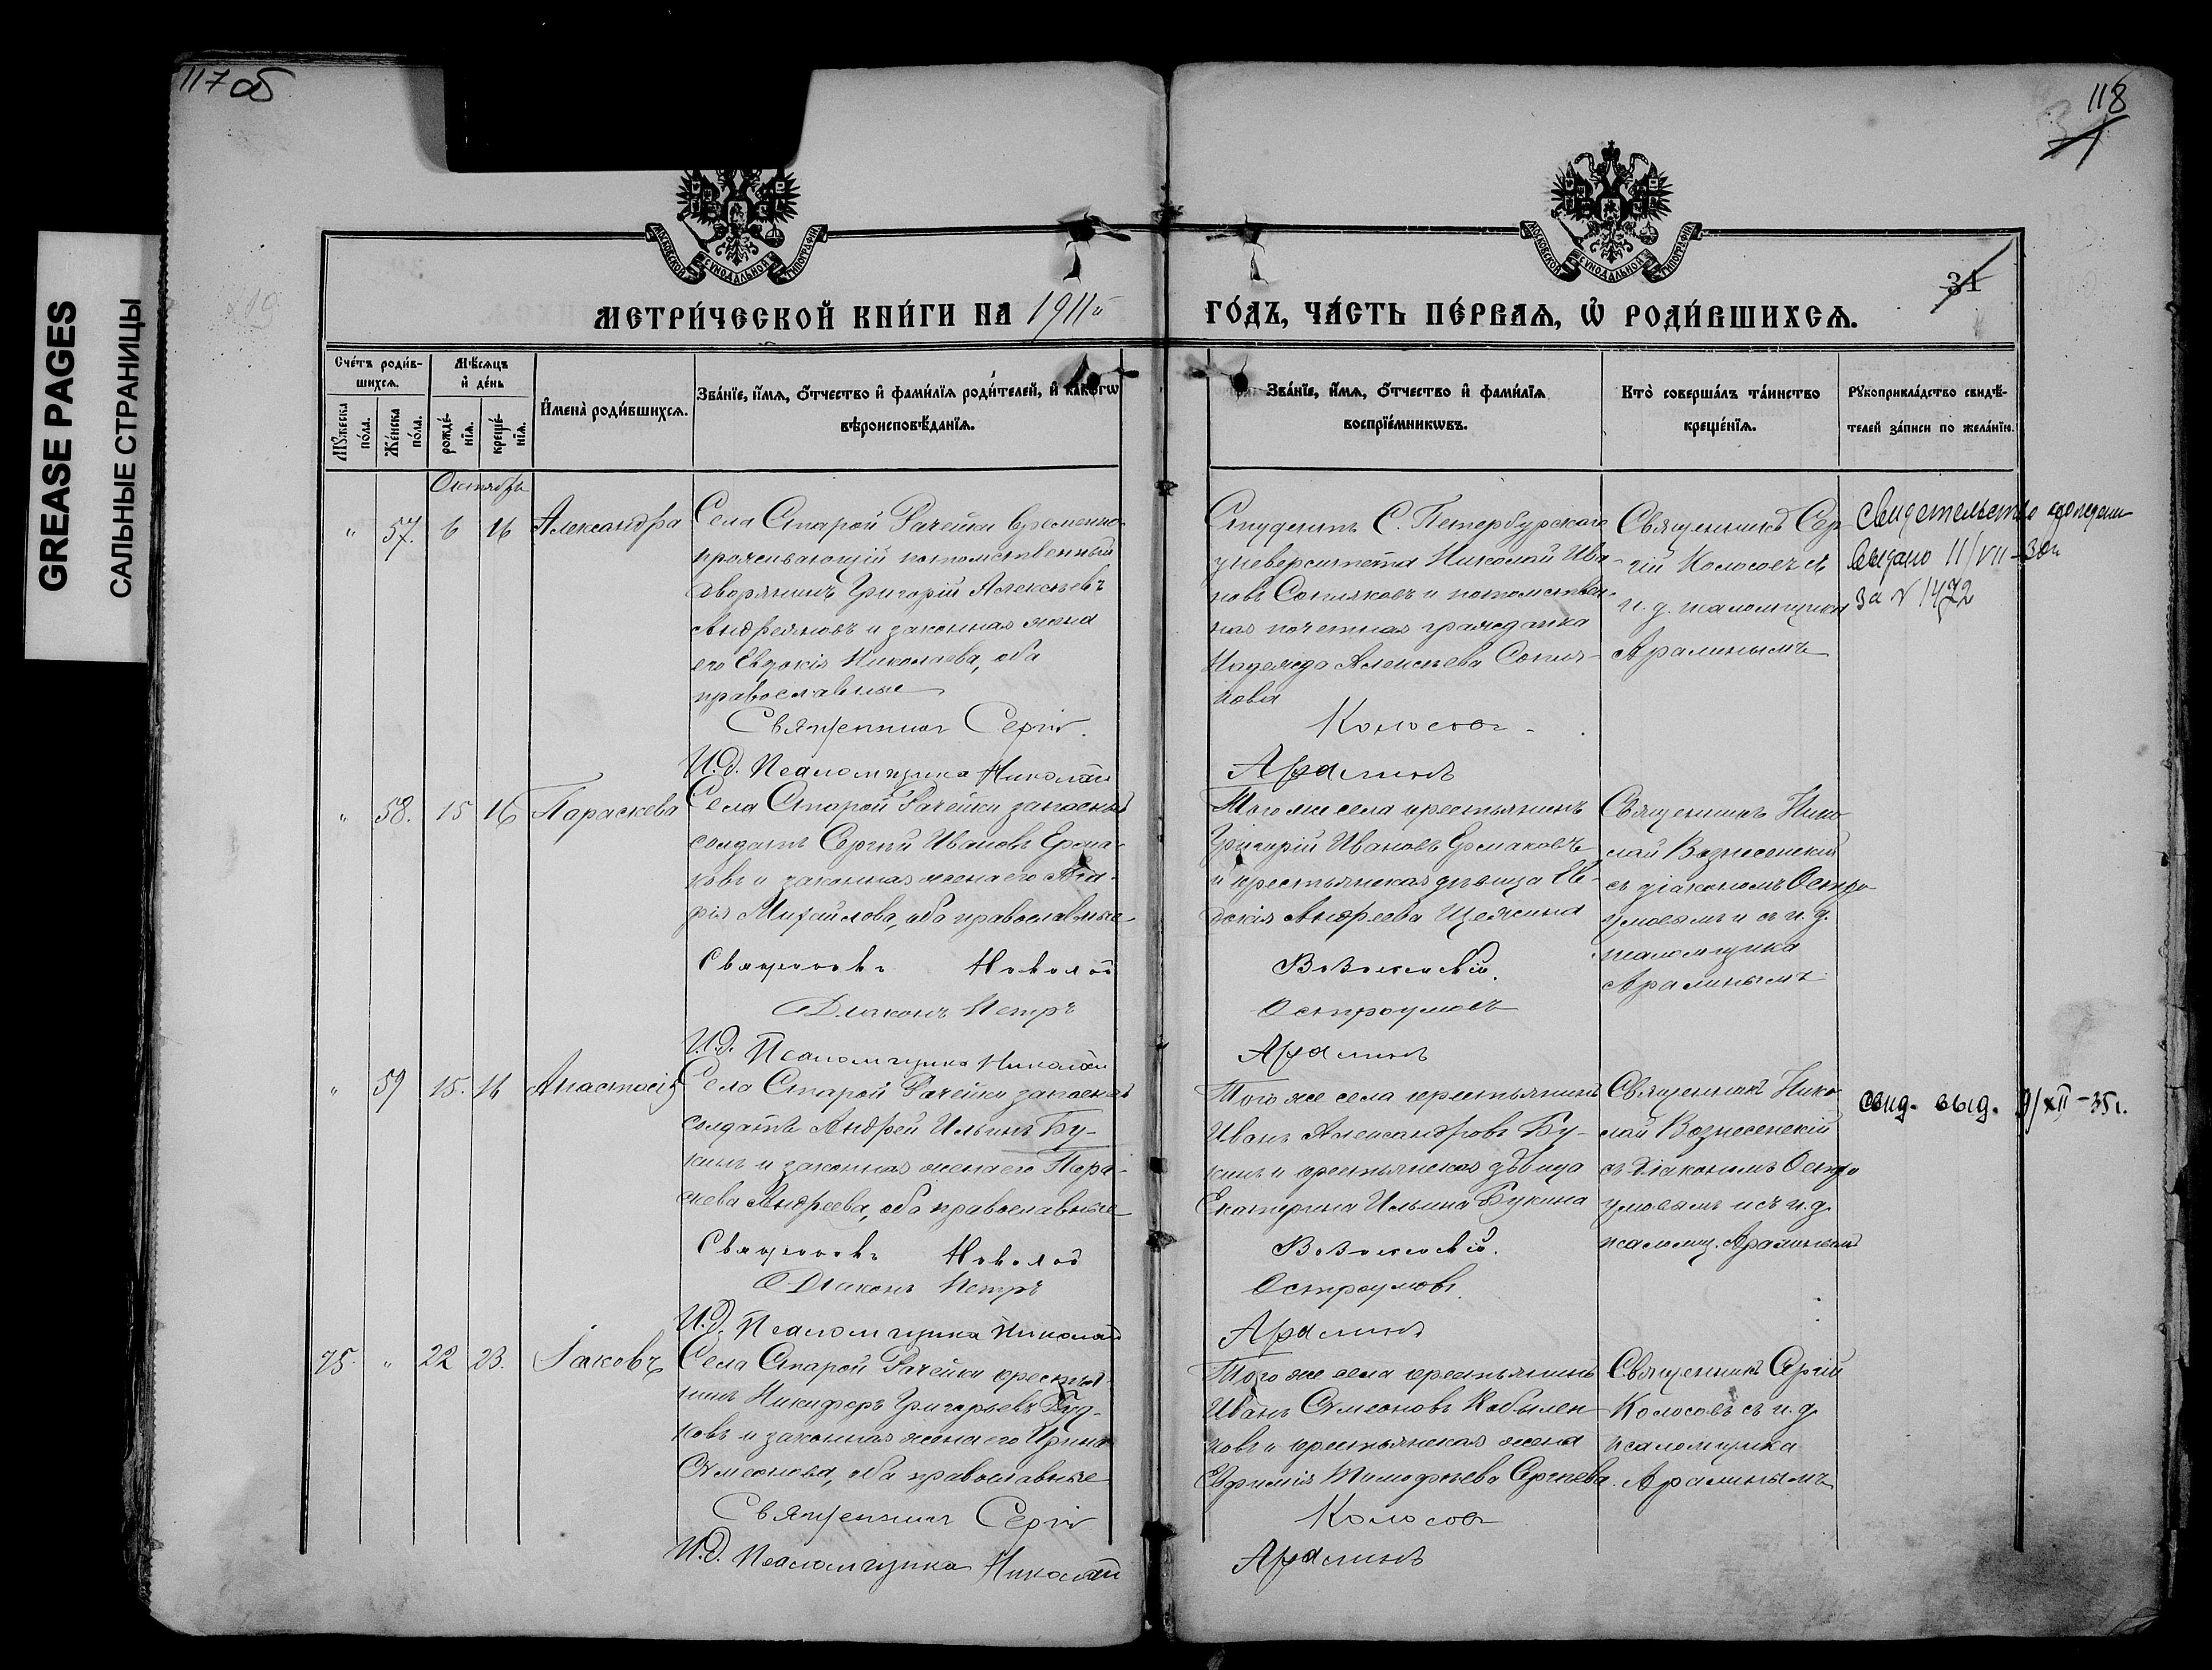 117 об
118
31
GREASE PAGES
САЛЬНЫЕ СТРАНИЦЫ
МОСКОВСКОЙ СѴНОДАЛЬНОЙ ТИПОГРАФІИ
МОСКОВСКОЙ СѴНОДАЛЬНОЙ ТИПОГРАФІИ
31
МЕТРИ́ЧЕСКОЙ КНИ́ГИ НА 1911й
ГО́ДЪ, ЧА́СТЬ ПЕ́РВАѦ, Ѡ҆ РОДИ́ВШИХСѦ.
Сче́тъ роди́в-
шихсѧ.
Мꙋ́жеска по́ла.
Же́нска по́ла.
Мѣ́сѧцъ
и҆ де́нь
рожде́-
нїѧ.
креще́-
нїѧ.
И҆мена̀ роди́вшихсѧ.
Зва́нїе, и҆́мѧ, ѻ҆́тчество и҆ фами́лїѧ роди́телей, и҆ како́гѡ
вѣроисповѣ́данїѧ.
Зва́нїе, и҆́мѧ, ѻ҆́тчество и҆ фами́лїѧ
воспрїе́мникѡвъ.
Кто̀ соверша́лъ та́инство
креще́нїѧ.
Рꙋкоприкла́дство свидѣ́-
телей за́писи по жела́нїю.
Октябрь
" 57. 6 16 Александра
Села Старой Рачейки временно
проживающій потомственный
дворянинъ Григорій Алексѣевъ
Андреяновъ и законная жена
его Евдокія Николаева, оба
православные
Священникъ Сергій
И.д. Псаломщика Николай
Студентъ С. Петербурскаго
университета Николай Ива-
новъ Сопляковъ и потомствен-
ная почетная гражданка
Надежда Алексѣева
кова
Колосовъ
Аралинъ
Священникъ Сер-
гій Колосовъ съ
и. д. псаломщика
Аралинымъ
Свидетельство
выдано 11/VII-30г
за № 1472
" 58. 15 16 Параскева
Села Старой Рачейки запасный
солдатъ Сергѣй Ивановъ Ерма-
ковъ и законная жена его
Михайлова, оба православные
Священникъ Николай
Діаконъ Петръ
И.д. Псаломщика Николай
Того же села крестьянинъ
Григорій Ивановъ Ермаковъ
и крестьянская дѣвица Ев-
докія Андреева
Вознесенскій.
Остроумовъ
Аралинъ
Священникъ Нико-
лай Вознесенскій
съ діакономъ Остро-
умовымъ и съ и. д.
псаломщика
Аралинымъ
" 59 15. 16 Анастасія
Села Старой Рачейки запасный
солдатъ Андрей Ильинъ Бу-
кинъ и законная жена его Пара-
скева Андреева, оба православные
Священникъ Николай
Діаконъ Петръ
И.д. Псаломщика Николай
Того же села крестьянинъ
Иванъ Александровъ Бу-
кинъ и крестьянская дѣвица
Екатерина Ильина Букина
Вознесенскій.
Остроумовъ.
Аралинъ
Священникъ Нико-
лай Вознесенскій
съ діакономъ Остро-
умовымъ и съ и. д.
псаломщ. Аралинымъ
свид. выд. 9/XII-35г.
75. " 22 23. Іаковъ
Села Старой Рачейки крестья-
нинъ Никифоръ Григорьевъ
ковъ и законная жена его Ирина
Симеонова, оба православные
Священникъ Сергій
И.д. Псаломщика Николай
Того же села крестьянинъ
Иванъ Симеоновъ Кобылен-
ковъ и крестьянская жена
Евфимія Тимофѣева Сергѣева.
Колосовъ
Аралинъ
Священникъ Сергій
Колосовъ съ и. д.
псаломщика
Аралинымъ